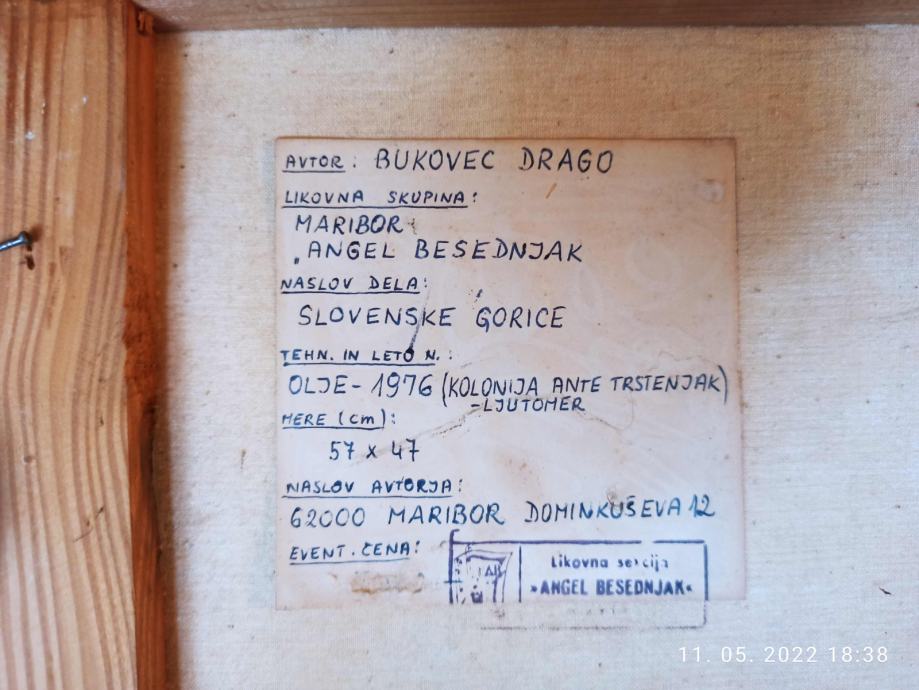 AVTOR: BUKOVEC DRAGO
LIKOVNA SKUPINA:
MARIBOR
„ANGEL BESEDNJAK
NASLOV DELA:
SLOVENSKE GORICE
TEHN. IN LETO N.:
OLJE - 1976 (KOLONIJA ANTE TRSTENJAK)
-LJUTOMER
MERE (cm):
57 x 47
NASLOV AVTORJA:
62000 MARIBOR DOMINKUŠEVA 12
EVENT. CENA:
Likovna sekcija
»ANGEL BESEDNJAK«
11. 05. 2022 18:38